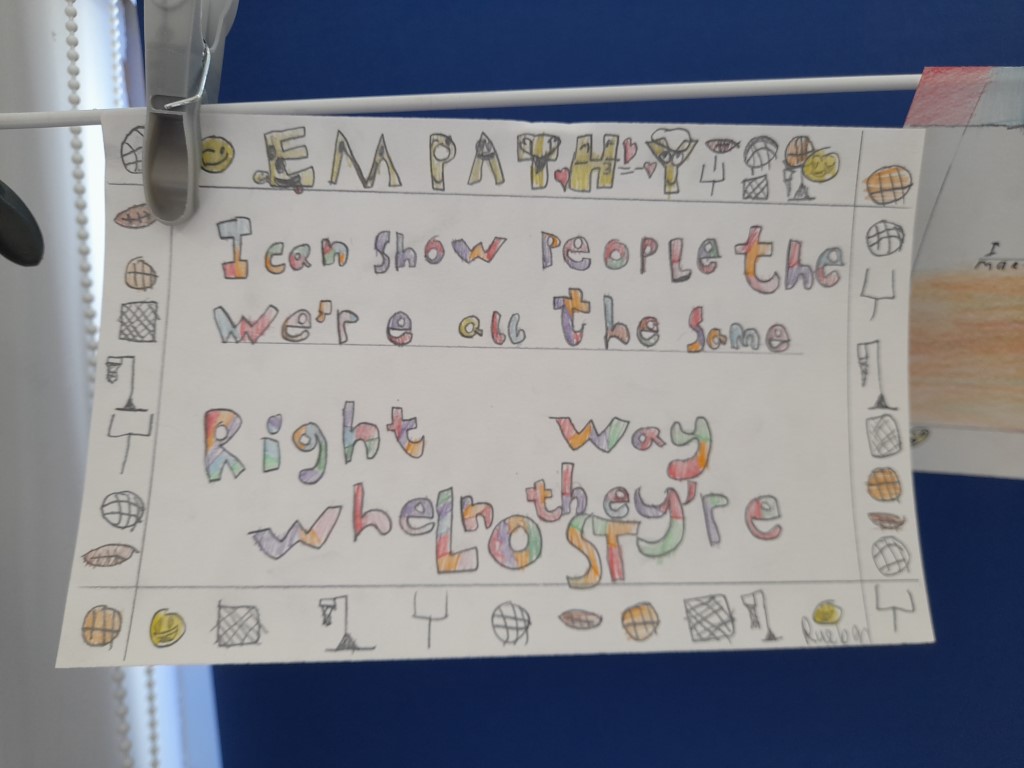 EMPATHY
I can show people the
we're all the same
Right way
when they're
LOST
Rueban
I
mae